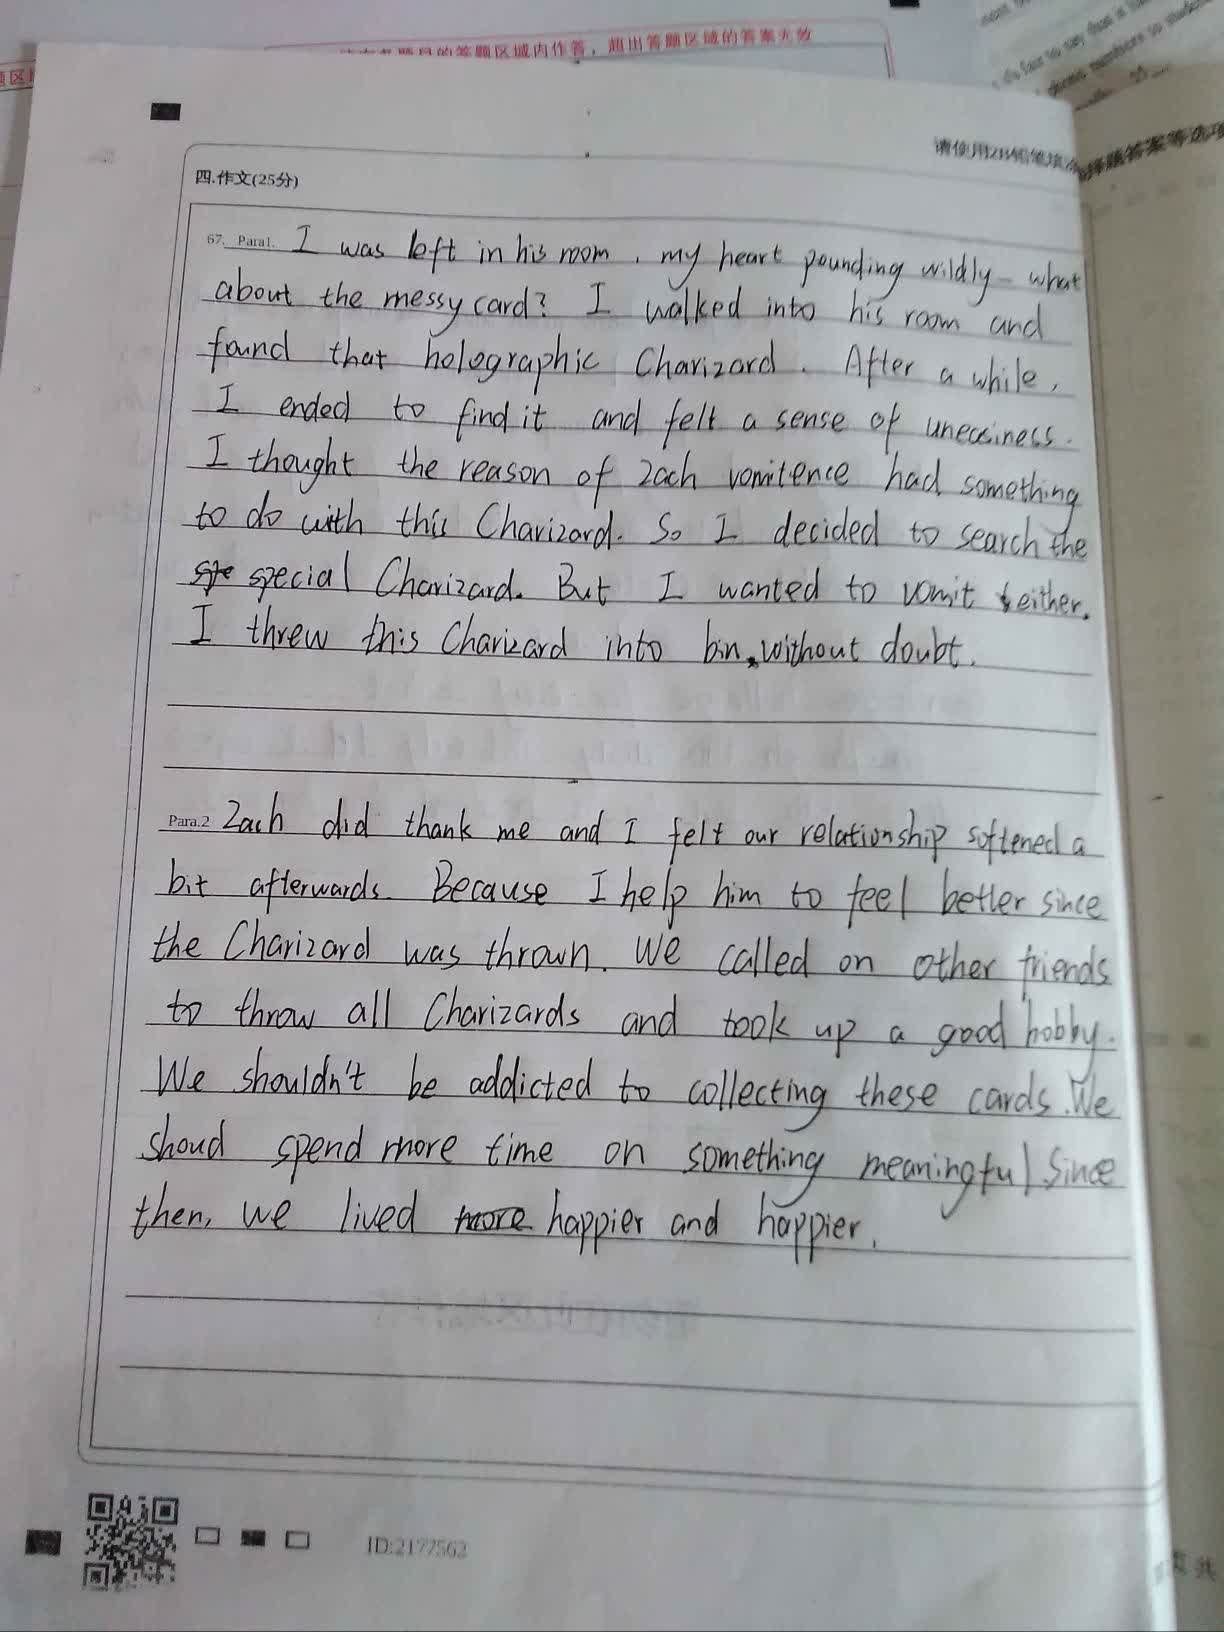 请在各题目的答题区域内作答，超出答题区域的答案无效
请使用2B铅笔填
择题答案等选项
四.作文(25分)
67. Para1. I was left in his room, my heart pounding wildly - what
about the messy card? I walked into his room and
found that holographic Charizard. After a while,
I ended to find it and felt a sense of uneasiness.
I thought the reason of Zach vomitence had something
to do with this Charizard. So I decided to search the
special Charizard. But I wanted to vomit either.
I threw this Charizard into bin, without doubt.
Para.2 Zach did thank me and I felt our relationship softened a
bit afterwards. Because I help him to feel better since
the Charizard was thrown. We called on other friends
to throw all Charizards and took up a good hobby.
We shouldn't be addicted to collecting these cards. We
shoud spend more time on something meaningful. Since
then, we lived more happier and happier.
ID:2177562